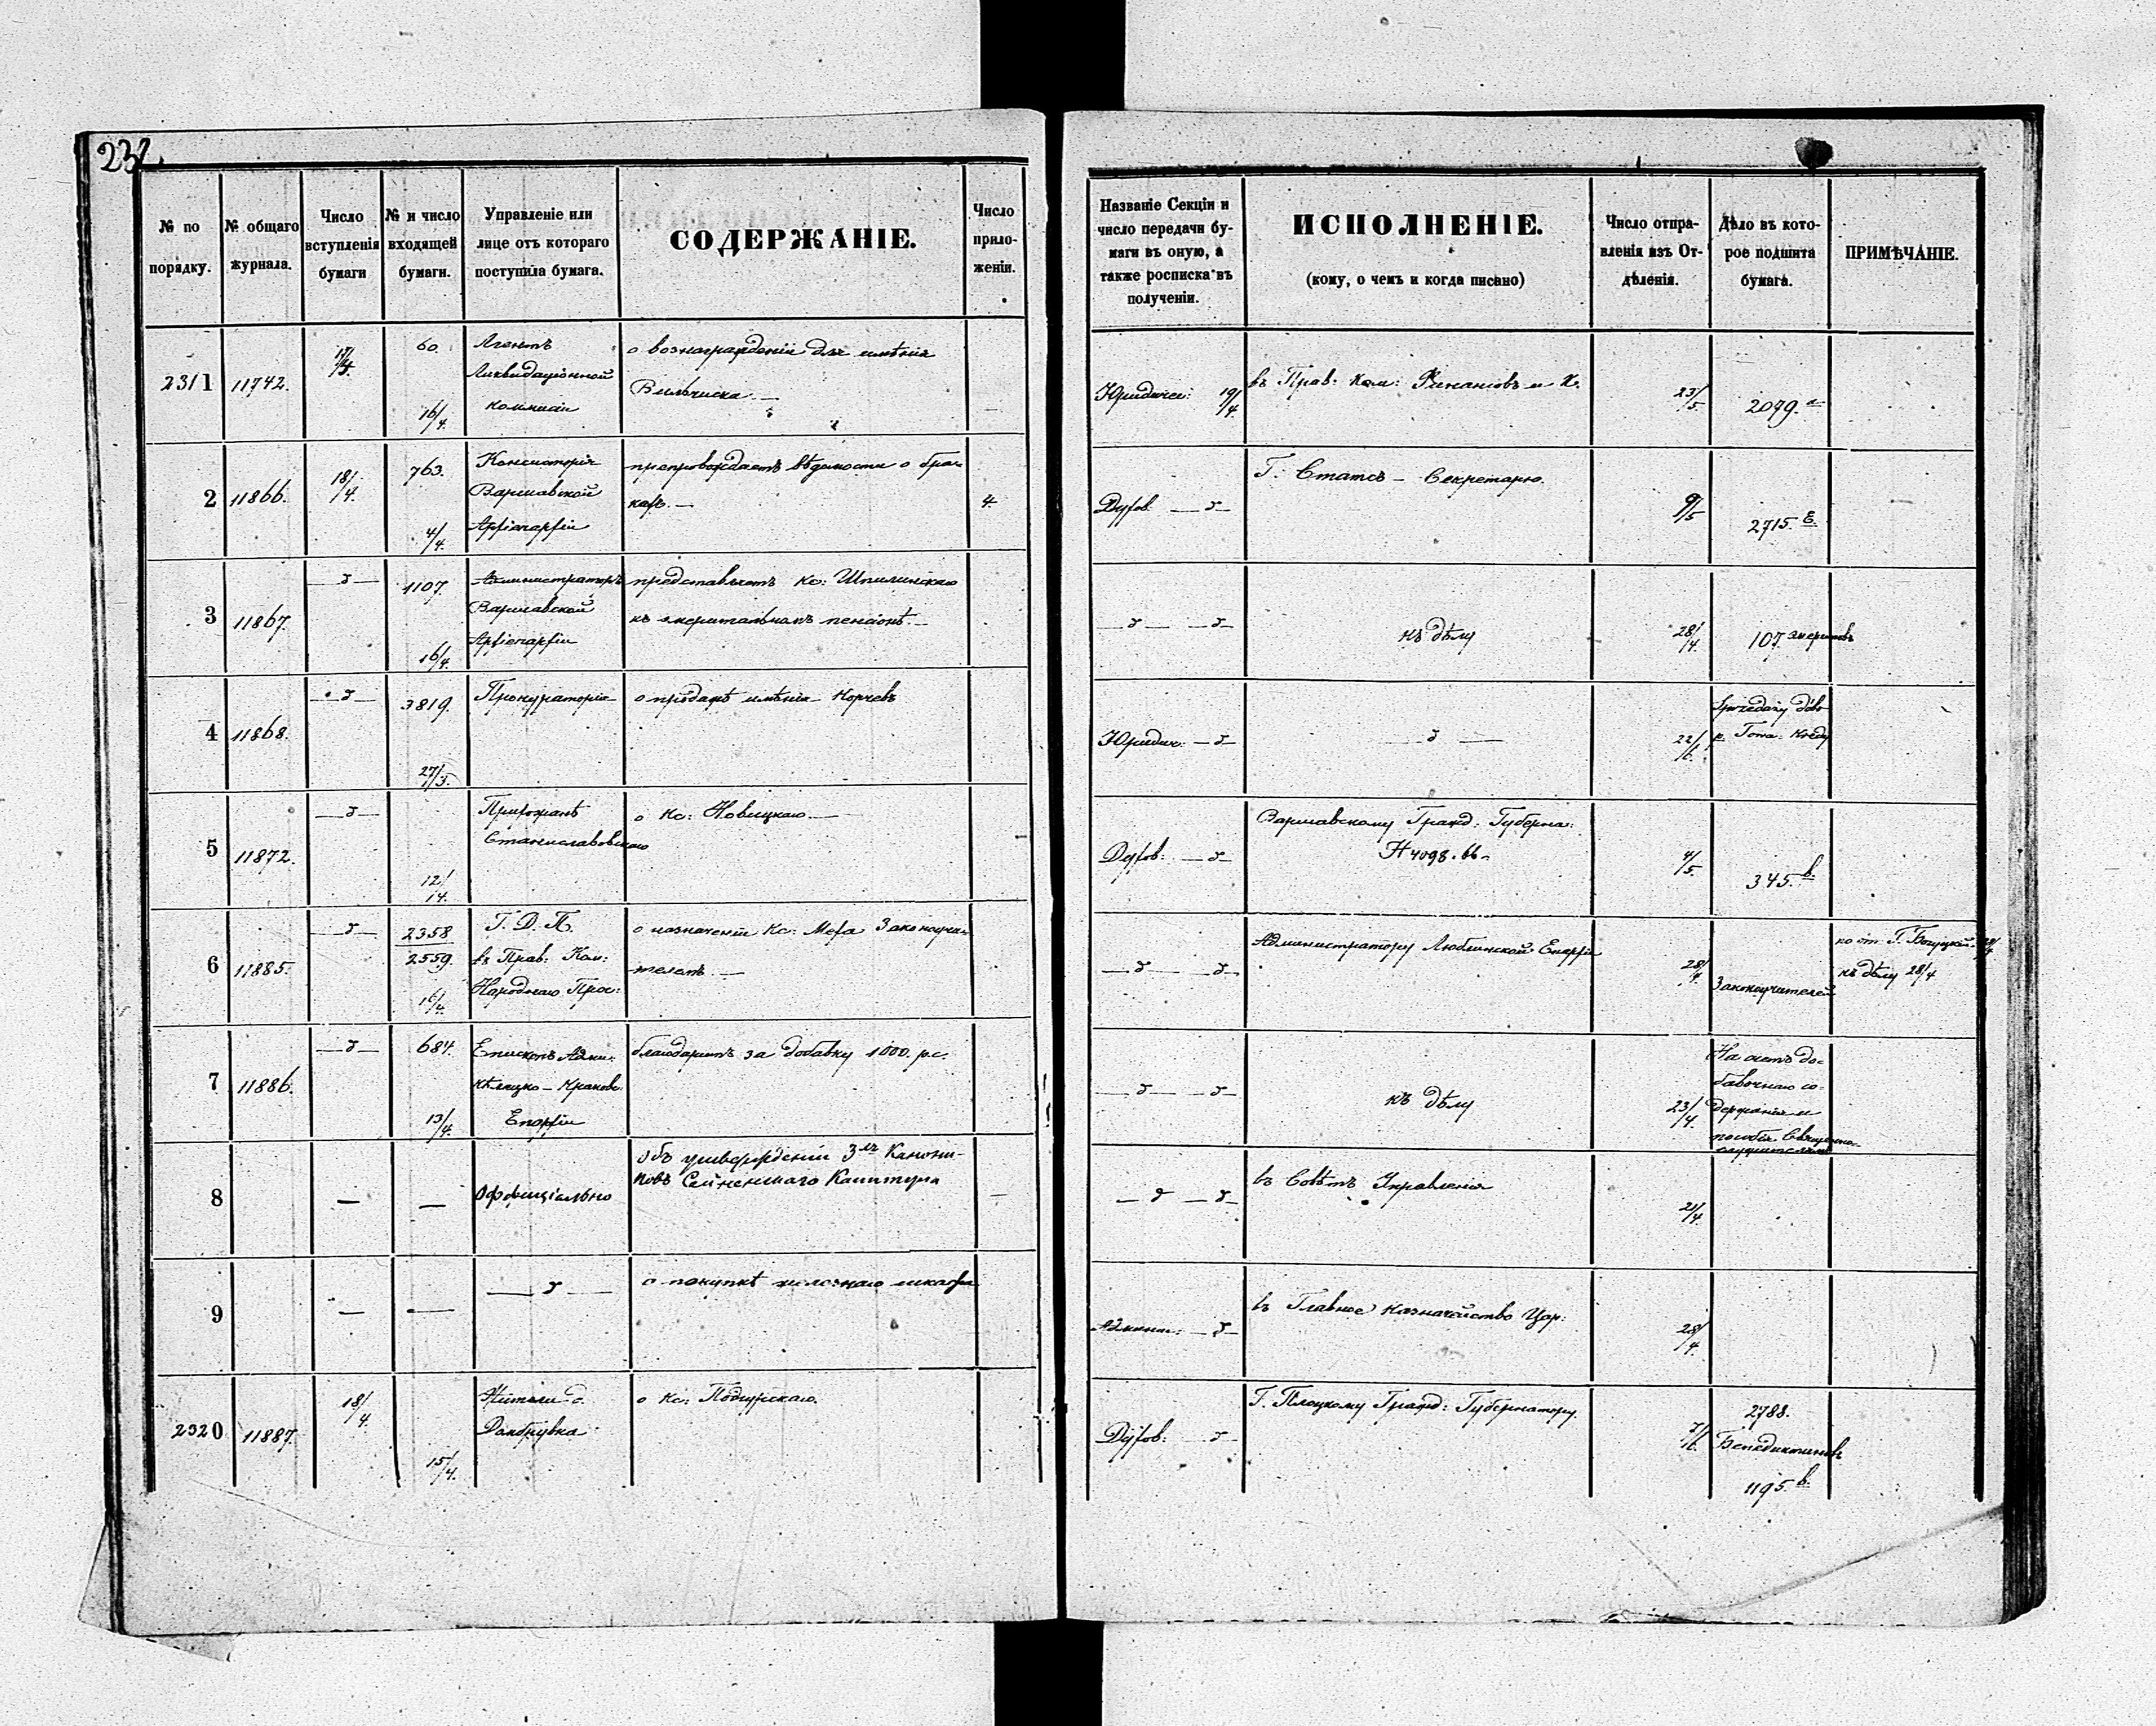 232
№ по порядку.
№ общаго журнала.
Число вступленія бумаги
№ и число входящей бумаги.
Управленіе или лице отъ котораго поступила бумага.
СОДЕРЖАНІЕ.
Число прило-женіи.
Названіе Секціи и число передачи бу-маги въ оную, а также росписка въ полученіи.
ИСПОЛНЕНІЕ.
(кому, о чемъ и когда писано)
Число отпра-вленія изъ От-дѣленія.
Дѣло въ кото-рое подшита бумага.
ПРИМѢЧАНІЕ.
2311
11742.
17/4.
60.
16/4.
Агентъ
Ликвидаціонной
коммисіи
о вознагражденіи для имѣнія
Вильчиска. —
Юридичес: 19/4.
въ Прав: Ком: Финансовъ и К.
23/5.
2079. a
2
11866.
18/4.
763.
4/4.
Консисторія
Варшавской
Архіепархіи
препровождаетъ вѣдомости о бра-
кахъ. —
4.
Духов. — " —
Г. Статсъ — Секретарю.
9/5
2715. E.
3
11867.
— " —
1107.
16/4.
Администраторъ
Варшавской
Архіепархіи
представляетъ Кс:
къ эмеритальномъ пенсіонѣ. —
— " — " —
къ дѣлу
28/4.
107. эмеритовъ
4
11868.
— " —
3819.
27/3.
Прокураторія
о продажѣ имѣнія Корчевъ
Юридич: — " —
— " —
22/6.
Sprzedaży dóbr
p. Tow. Kredy
5
11872.
— " —
12/4.
Прихожанѣ
Станиславовскаго
о Кс: Новицкаго —
Духов: — " —
Варшавскому Гражд: Губерна:
N 4098. bb.
4/5.
345. b.
6
11885.
— " —
2358
2559.
16/4.
Г. Д. П.
въ Прав: Ком:
Народнаго Прос:
о назначеніи Кс: Меха Законоучи-
телемъ. —
— " — " —
Администратору Люблинской Епархіи
28/4.
Законоучителей
къ дѣлу 28/4
7
11886.
— " —
684.
13/4.
Епископъ Адми:
Кѣлецко — Краковс:
Епархіи
благодаритъ за добавку 1000. р.с.
— " — " —
къ дѣлу
23/4.
На счетъ до-
бавочнаго со-
держанія и
пособія Священно-
служителямъ
8
—
—
Оффиціально
объ утвержденіи 3хъ Канони-
ковъ Сейненскаго Капитула
— " — " —
въ Совѣтъ Управленія
21/4.
9
—
—
— " —
о покупкѣ желѣзнаго шкафа
Админи: — " —
въ Главное Казначейство Цар:
28/4.
2320
11887.
18/4.
15/4.
Жители д.
Домбрувка
о Кс:
Духов: — " —
Г. Плоцкому Гражд: Губернатору.
7/6.
2788.
Бенедиктиновъ
1195. b.